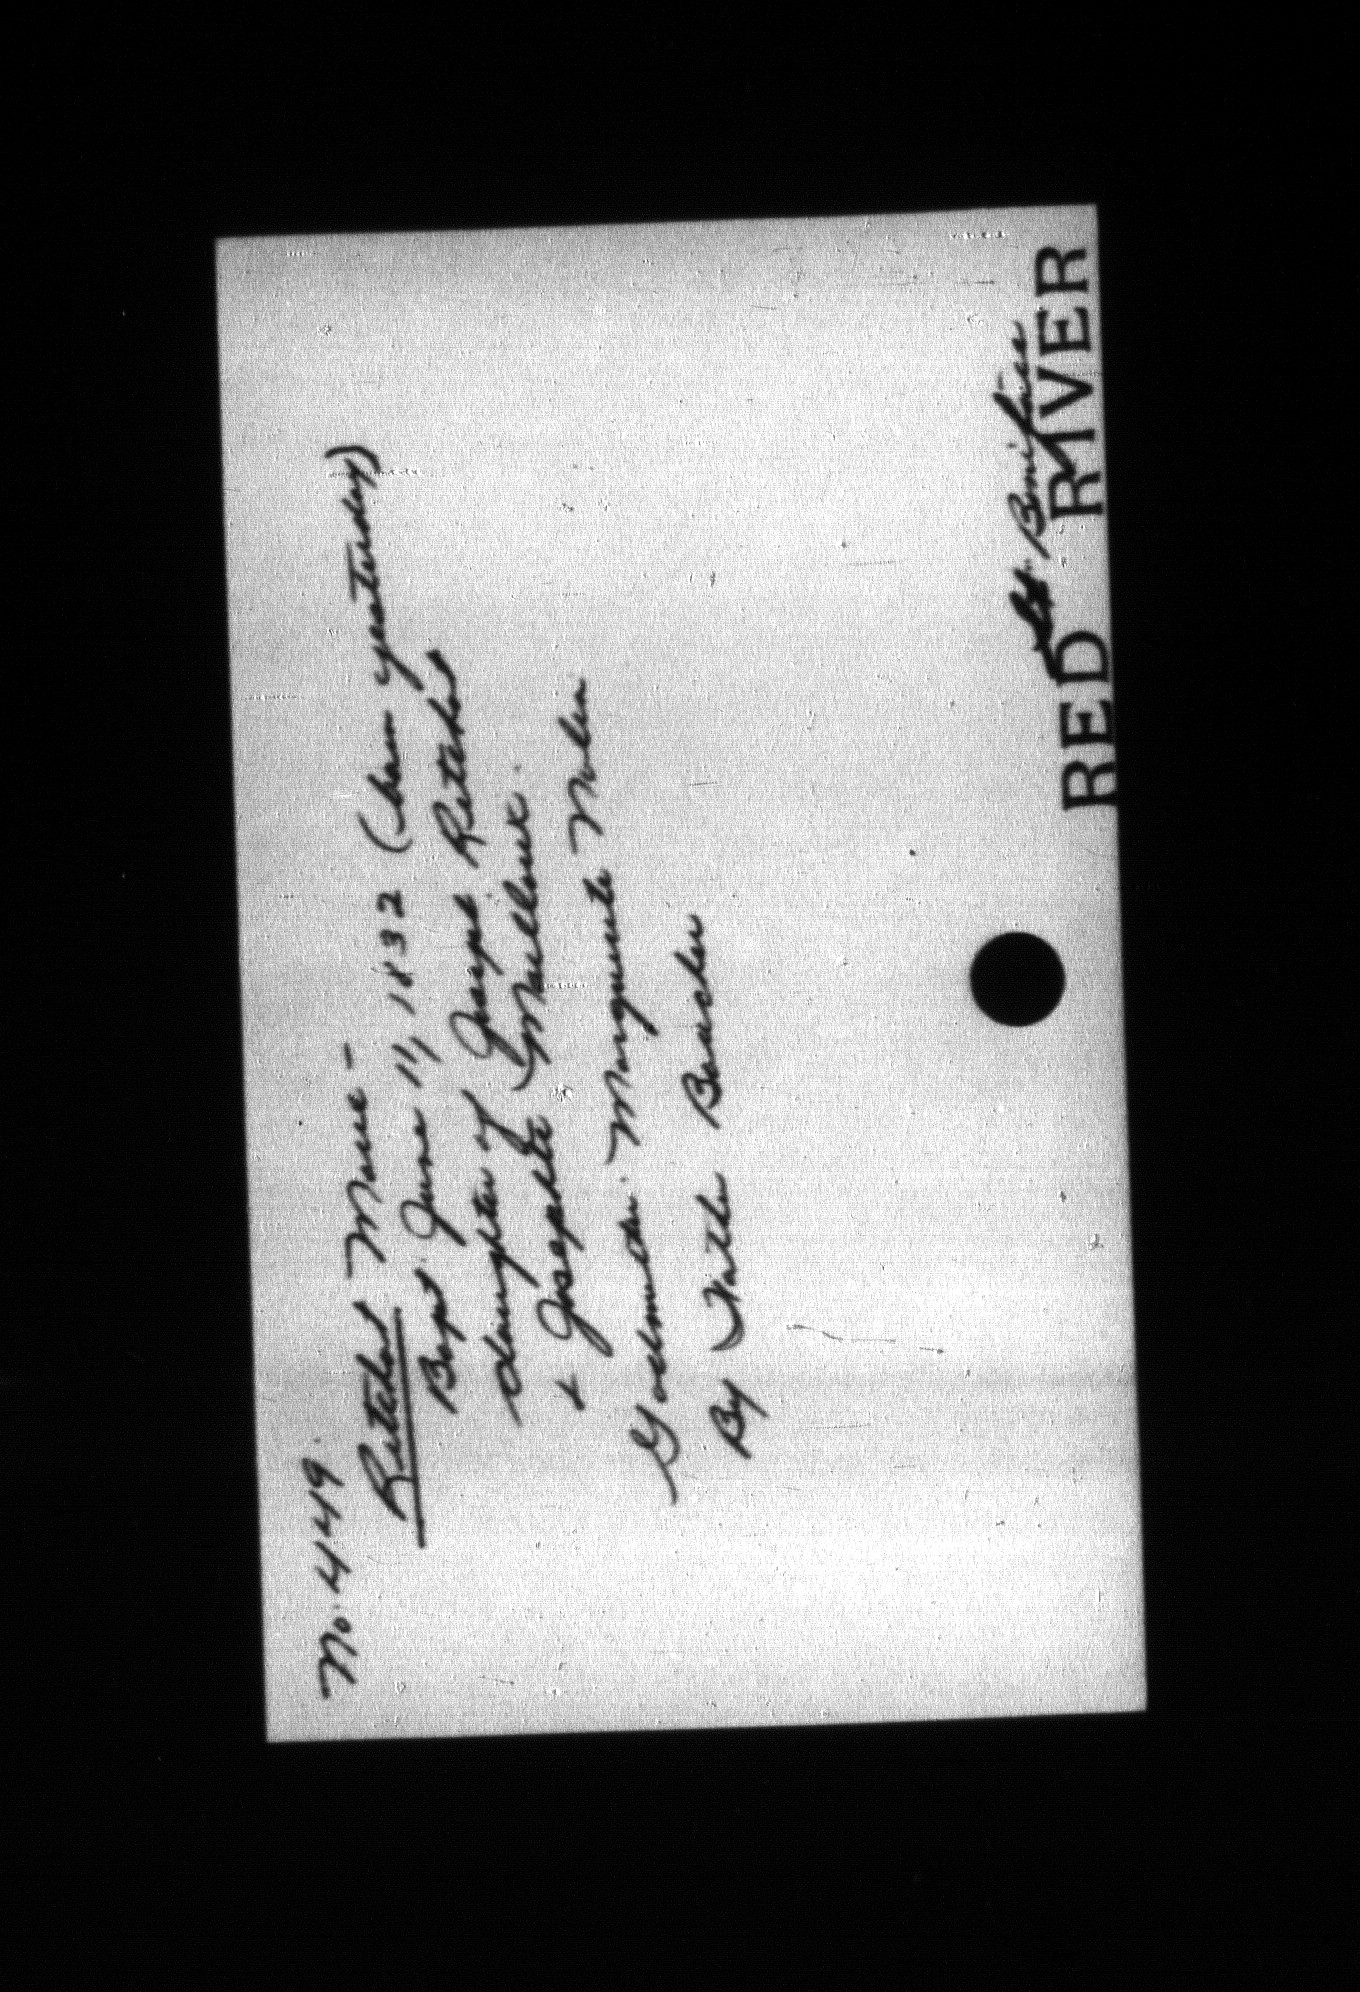 No. 4449.
Ritchot Marie -
Bapt. June 11, 1832 (born yesterday)
daughter of Joseph Ritchot
& Josephte Mailloux.
Godmother: Marguerite Molen
By Father Boucher
St. Boniface
RED RIVER